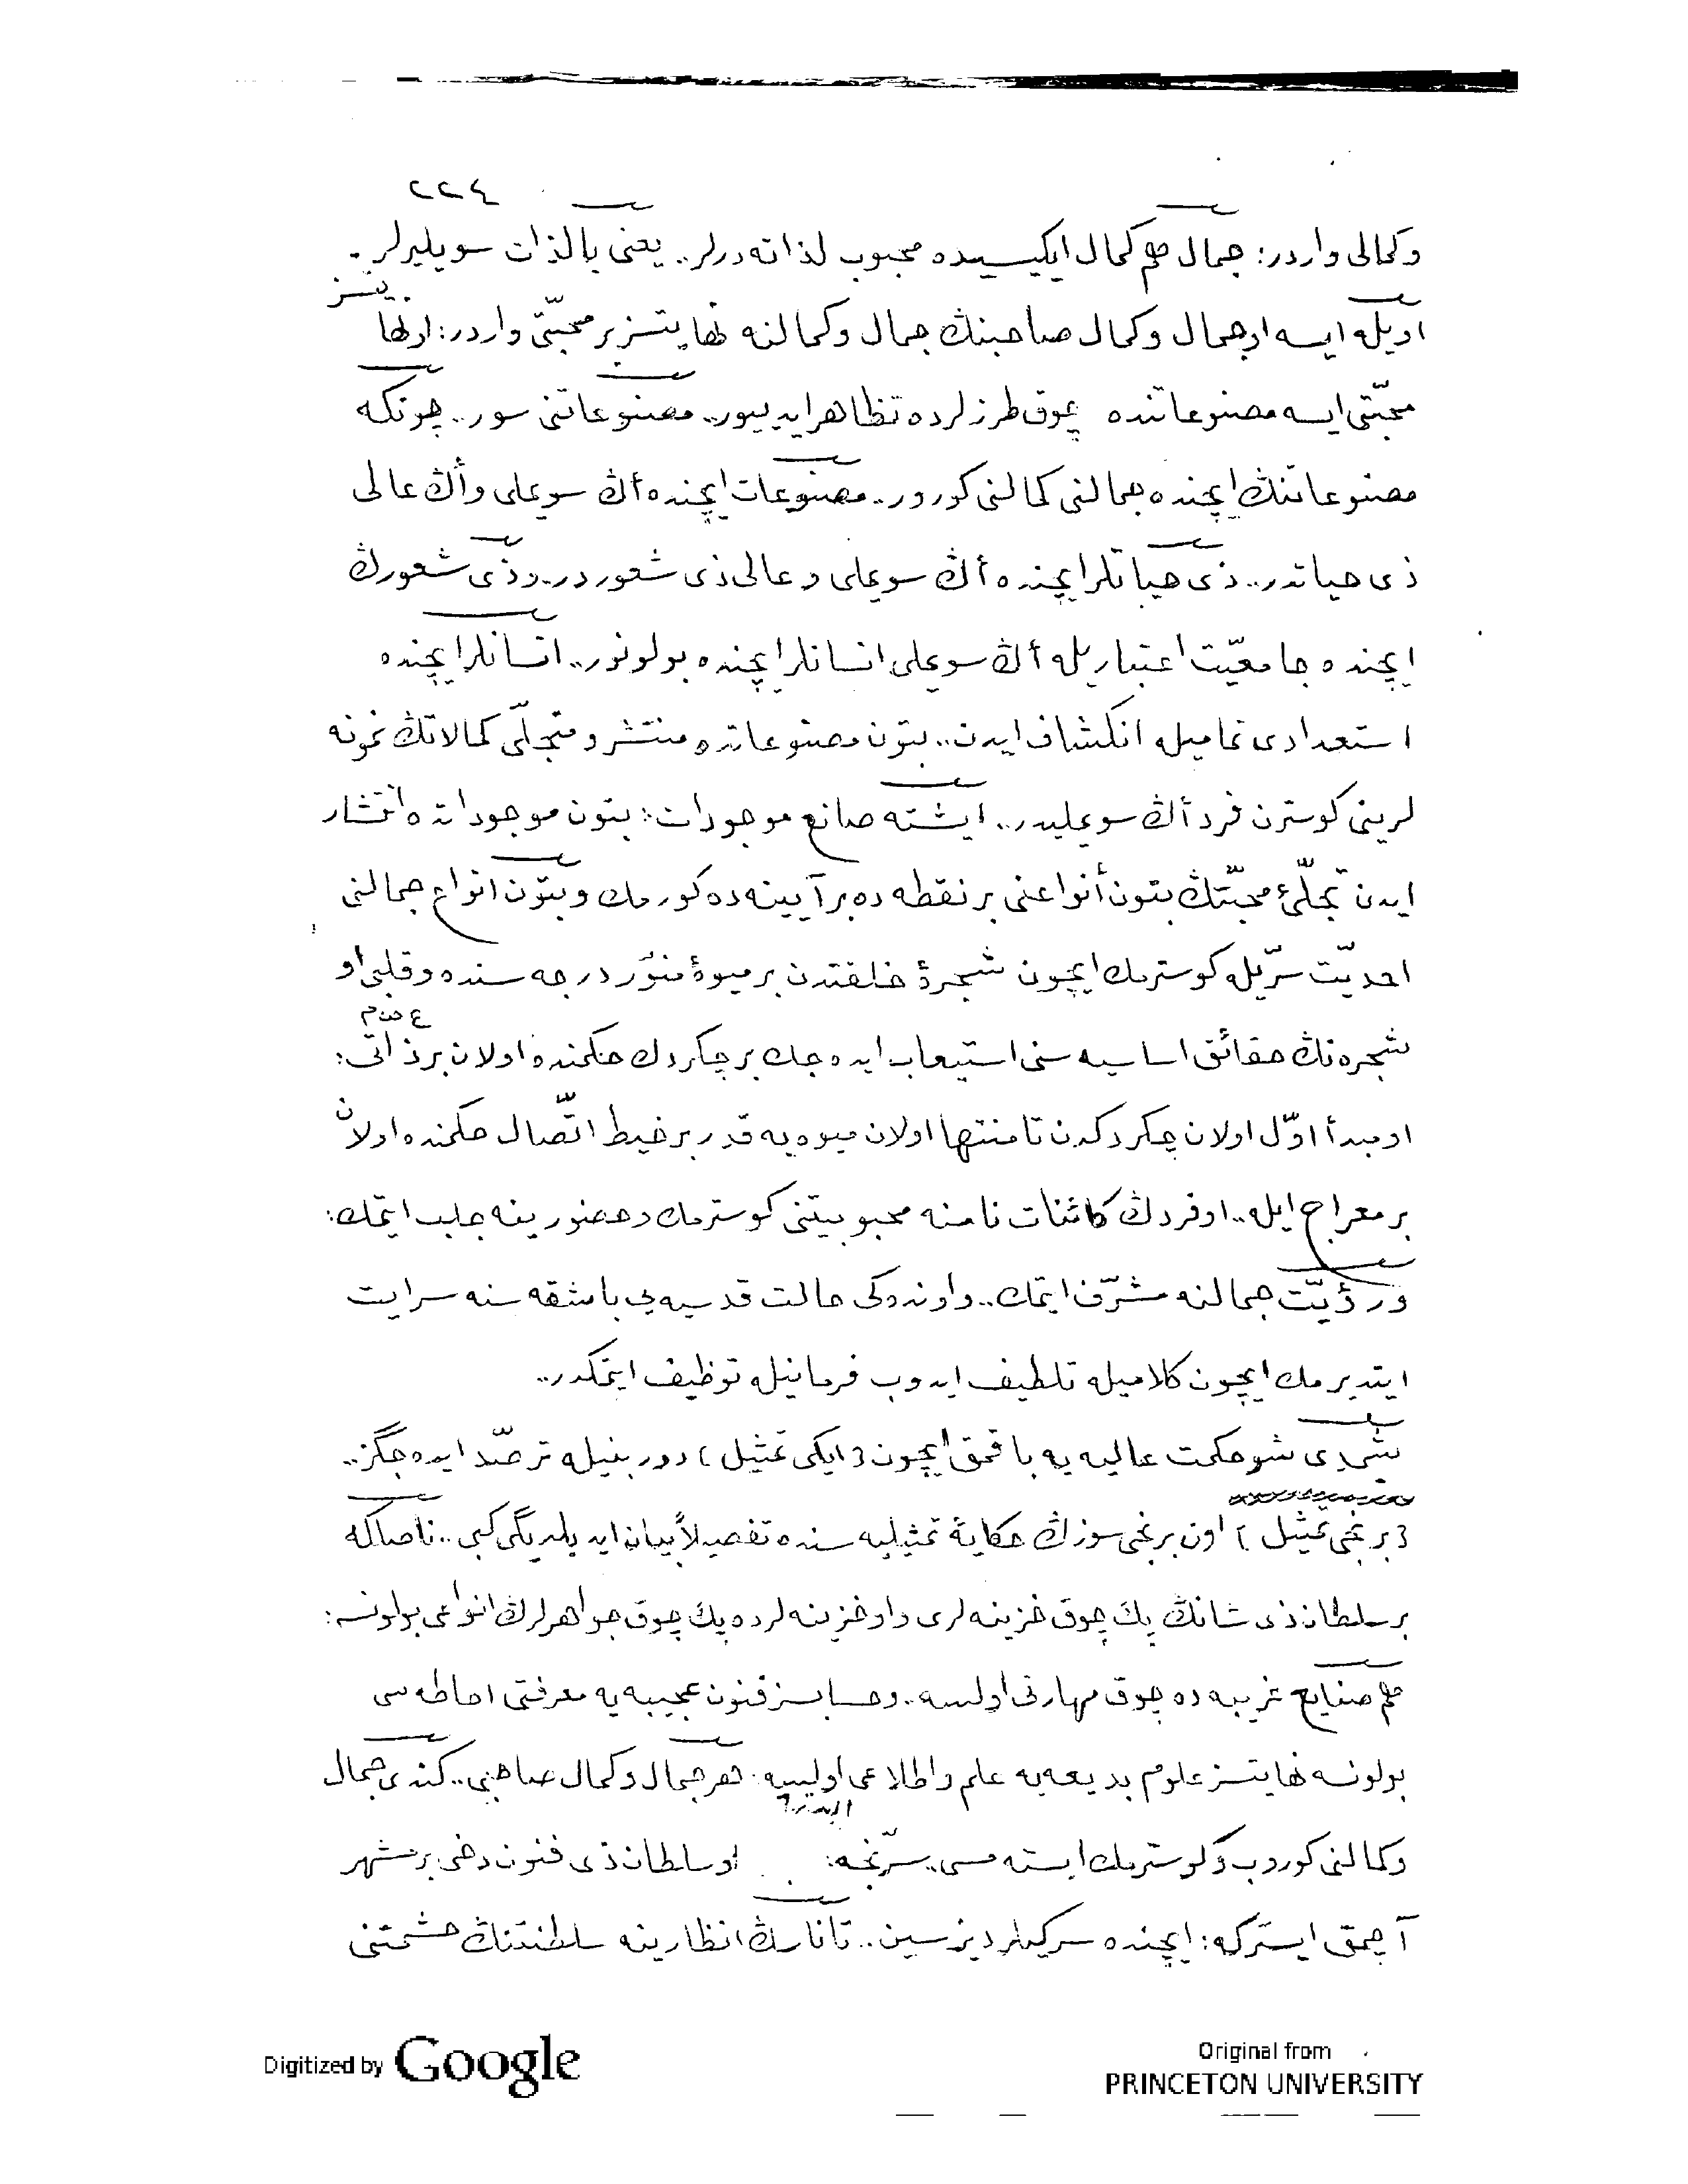 ٢٢٤
وكمالى واردر: جمال هم كمال ايكيسيده محبوب لذاته درلر.. يعنى بالذات سويليرلر.
اويله ايسه اوجمال وكمال صاحبنڭ جمال وكمالنه نهايتسز بر محبّتى واردر: اونها
يتسز
محبّتى ايسه مصنوعاتنده چوق طرزلرده تظاهر ايدييور.. مصنوعاتنى سور.. چونكه
مصنوعاتنڭ ايچنده جمالنى كمالنى كورور.. مصنوعات ايچنده أڭ سويملى وأڭ عالى
ذى حياتدر.. ذى حياتلر ايچنده أڭ سويملى و عالى ذى شعوردر.. وذى شعورڭ
ايچنده جامعيّت اعتباريله أڭ سويملى انسانلر ايچنده بولونور.. انسانلر ايچنده
استعدادى تماميله انكشاف ايدن.. بتون مصنوعاتده منتشر و متجلّى كمالاتڭ نمونه
لرينى كوسترن فرد أڭ سويمليدر.. ايشته صانع موجودات: بتون موجوداتده انتشار
ايدن تجلّئ محبّتڭ بتون أنواعنى بر نقطه ده بر آيينه ده كورمك وبتون انواع جمالنى
احديّت سرّيله كوسترمك ايچون شجرۀ خلقتدن بر ميوۀ منوّر درجه سنده وقلبى او
ع ص م
شجره نڭ حقائق اساسيه سنى استيعاب ايده جك بر چكردك حكمنده اولان بر ذاتى:
او مبدأ اوّل اولان چكردكدن تا منتها اولان ميوه يه قدر بر خيط اتّصال حكمنده اولان
بر معراج ايله.. اوفردڭ كائنات نامنه محبوبيتنى كوسترمك وحضورينه جلب ايتمك:
ورؤيّت جمالنه مشرّف ايتمك.. واونده كى حالت قدسيه يى باشقه سنه سرايت
ايتديرمك ايچون كلاميله تلطيف ايدوب فرمانيله توظيف ايتمكدر..
شيمدى شو حكمت عاليه يه باقمق ايچون (ايكى تمثيل) دوربينيله ترصّد ايده جگز..
(برنجى تمثيل) اون برنجى سوزڭ حكايۀ تمثيليه سنده تفصيلاً بيان ايديلديگى كبى.. ناصلكه
بر سلطان ذى شانڭ پك چوق خزينه لرى واو خزينه لرده پك چوق جواهرلرڭ انواعى بولونسه:
هم صنايع غريبه ده چوق مهارتى اولسه.. وحسابسز فنون عجيبه يه معرفتى احاطه سى
بولونسه نهايتسز علوم بديعه يه علم واطلاعى اولسه. هر جمال وكمال صاحبى.. كندى جمال
وكمالنى كوروب وكوسترمك ايسته مسى سرّنجه: او سلطان ذى فنون دخى بر مشهر
آچمق ايستركه: ايچنده سركيلر ديزسين.. تا ناسڭ انظارينه سلطنتنڭ حشمتنى
Digitized by Google
Original from
PRINCETON UNIVERSITY